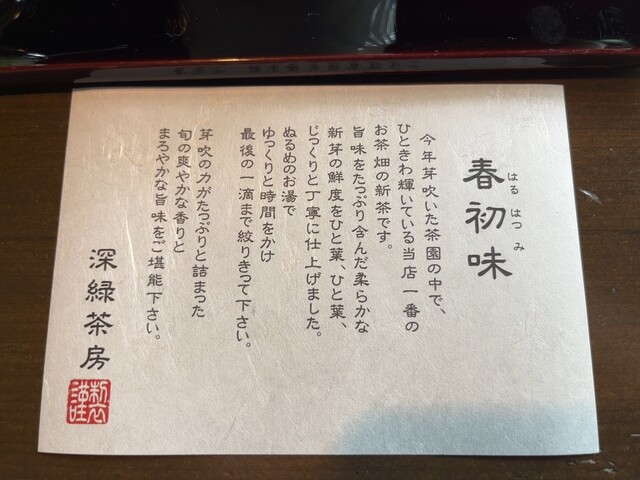 春初味
はる はつ み
今年芽吹いた茶園の中で、
ひときわ輝いている当店一番の
お茶畑の新茶です。
旨味をたっぷり含んだ柔らかな
新芽の鮮度をひと葉、ひと葉、
じっくりと丁寧に仕上げました。
ぬるめのお湯で
ゆっくりと時間をかけ
最後の一滴まで絞りきって下さい。
芽吹の力がたっぷりと詰まった
旬の爽やかな香りと
まろやかな旨味をご堪能下さい。
深緑茶房
謹製